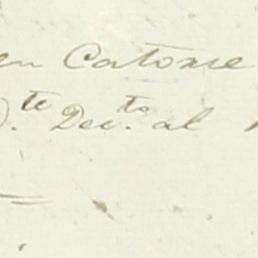 en Catorce
te Dec.to al